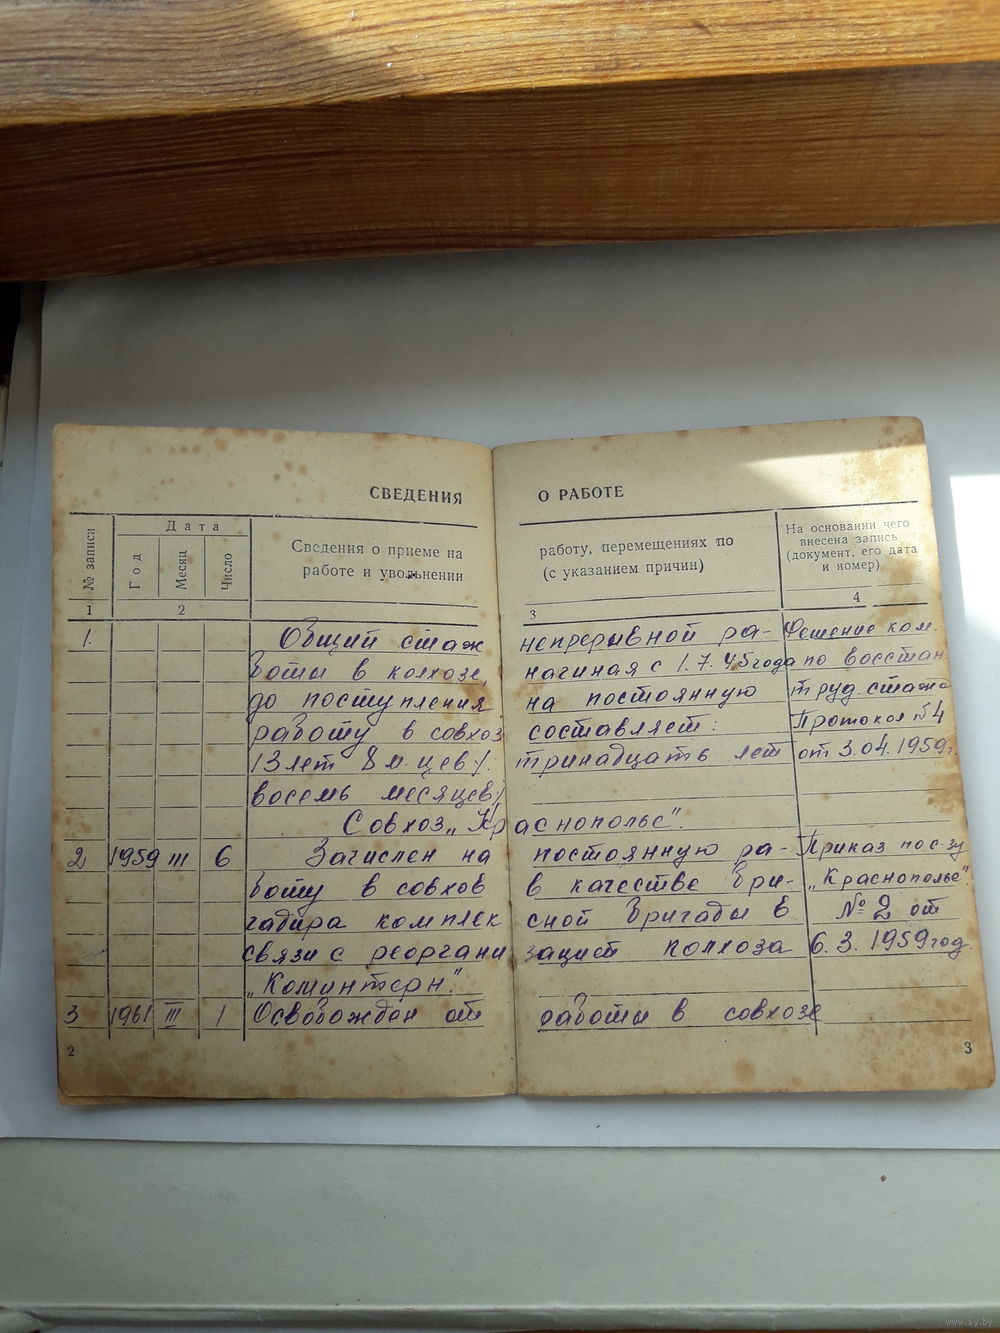 СВЕДЕНИЯ О РАБОТЕ
№ записи
Дата
Год
Месяц
Число
Сведения о приеме на работу, перемещениях по
работе и увольнении (с указанием причин)
На основании чего
внесена запись
(документ, его дата
и номер)
1 2 3 4
1. Общий стаж непрерывной ра- Решение ком.
боты в колхозе, начиная с 1.7.45 года по восстан.
до поступления на постоянную труд. стажа
работу в совхоз составляет: Протокол №4
13 лет 8 м-цев /. тринадцать лет от 3.04.1959г.
восемь месяцев/
Совхоз „Краснополье".
2 1959 III 6 Зачислен на постоянную ра- Приказ по с-зу
боту в совхов в качестве бри- „Краснополье".
гадира комплексной бригады в № 2 от
связи с реорганизацист колхоза 6.3. 1959 год.
„Коминтерн".
3 1961 III 1 Освобожден от работы в совхозе
2
3
www.ay.by